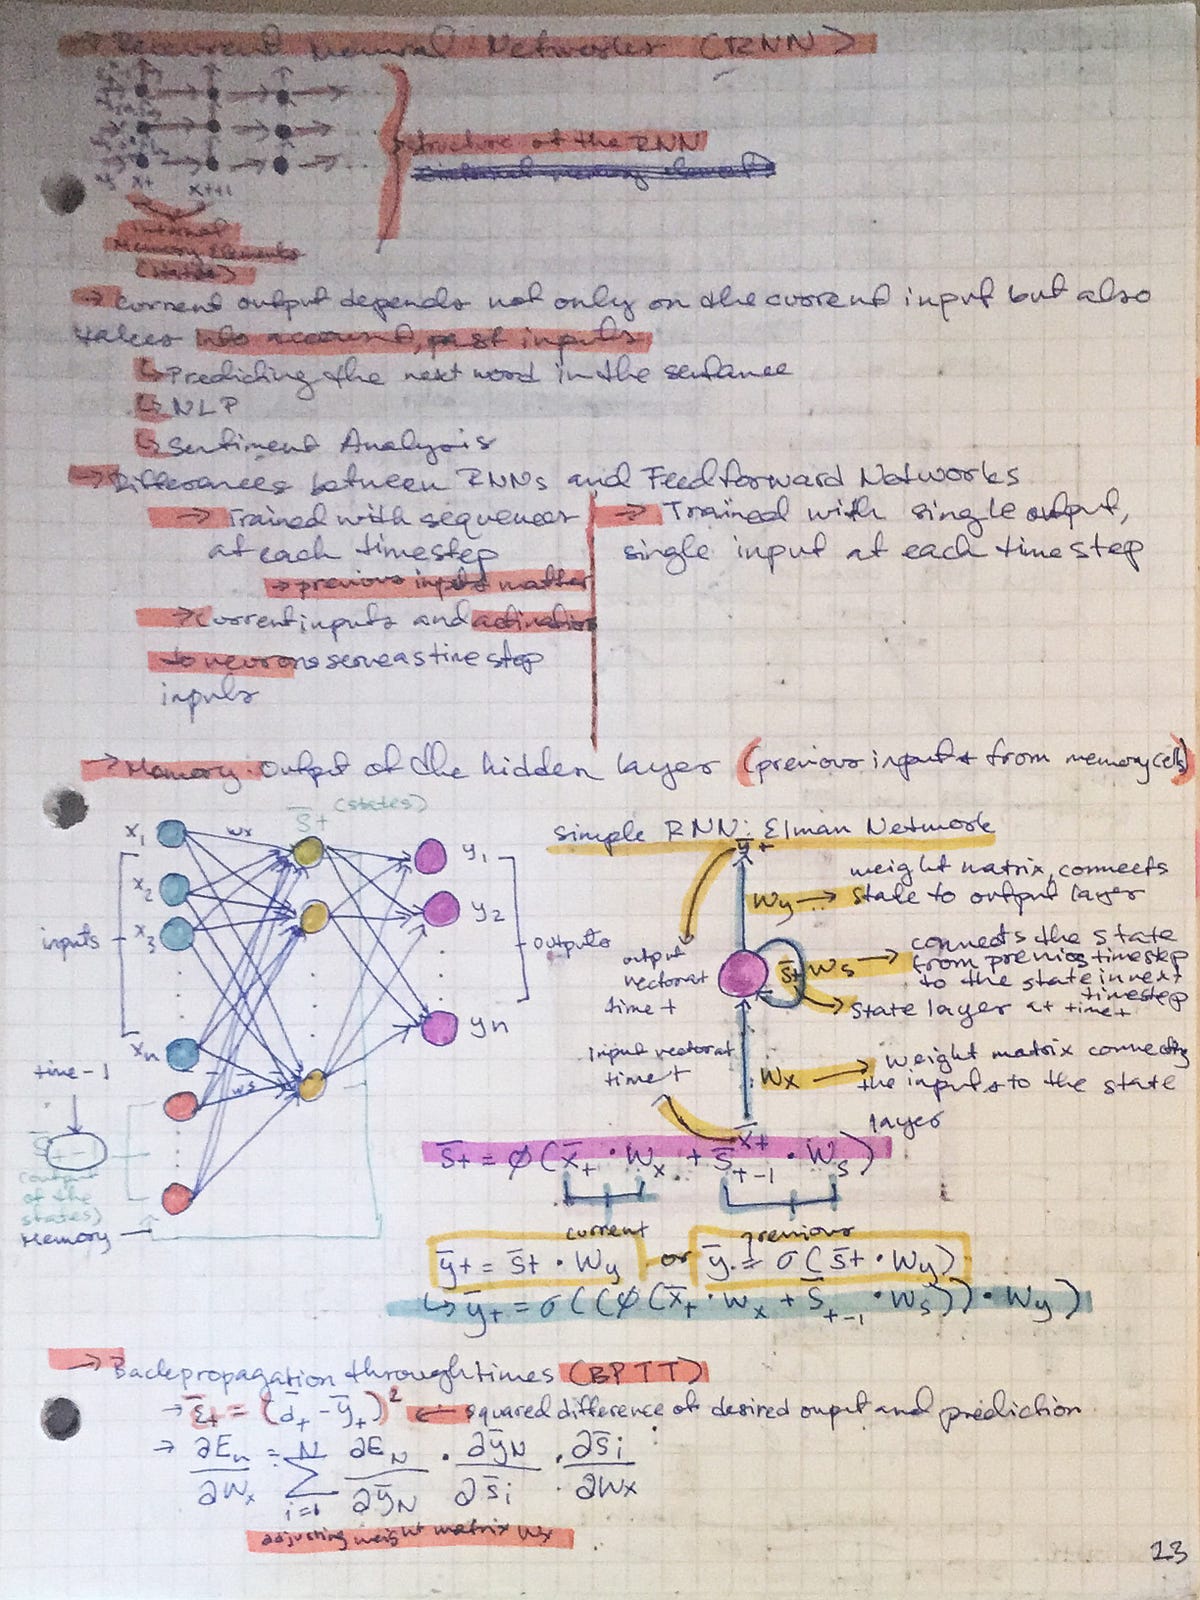 → Recurrent Neural Networks (RNN)
structure of the RNN
xt xt+1
internal
Memory Elements
(states)
→ current output depends not only on the current input but also
takes into account, past inputs
↳ Predicting the next word in the sentance
↳ NLP
↳ Sentiment Analysis
→ Differences between RNNs and Feedforward Networks
→ Trained with sequences
at each timestep
→ previous inputs matter
→ Current inputs and activations
to neurons serve as time step
inputs
→ Trained with single output,
single input at each time step
→ Memory: Output of the hidden layer (previous inputs from memory cells)
S̄t (states)
x1 wx y1
x2 y2
x3
inputs outputs
yn
xn
time-1 ws
S̄t-1
(output
of the
states)
Memory
Simple RNN: Elman Network
ȳt
weight matrix, connects
Wy → state to output layer
output
vector at
time t
S̄t Ws → connects the state
from previos timestep
to the state in next
timestep
state layer at time t
input vector at
time t
Wx → weight matrix connecting
the inputs to the state
layer
x̄t
S̄t = ϕ(x̄t · Wx + S̄t-1 · Ws)
current previous
ȳt = S̄t · Wy or ȳt = σ(S̄t · Wy)
↳ ȳt = σ((ϕ(x̄t · Wx + S̄t-1 · Ws)) · Wy)
→ Backpropagation through times (BPTT)
→ Ēt = (d̄t - ȳt)² ← squared difference of desired ouput and prediction
→ ∂En/∂Wx = N∑i=1 ∂EN/∂ȳN · ∂ȳN/∂s̄i · ∂s̄i/∂Wx
adjusting weight matrix Wx
23